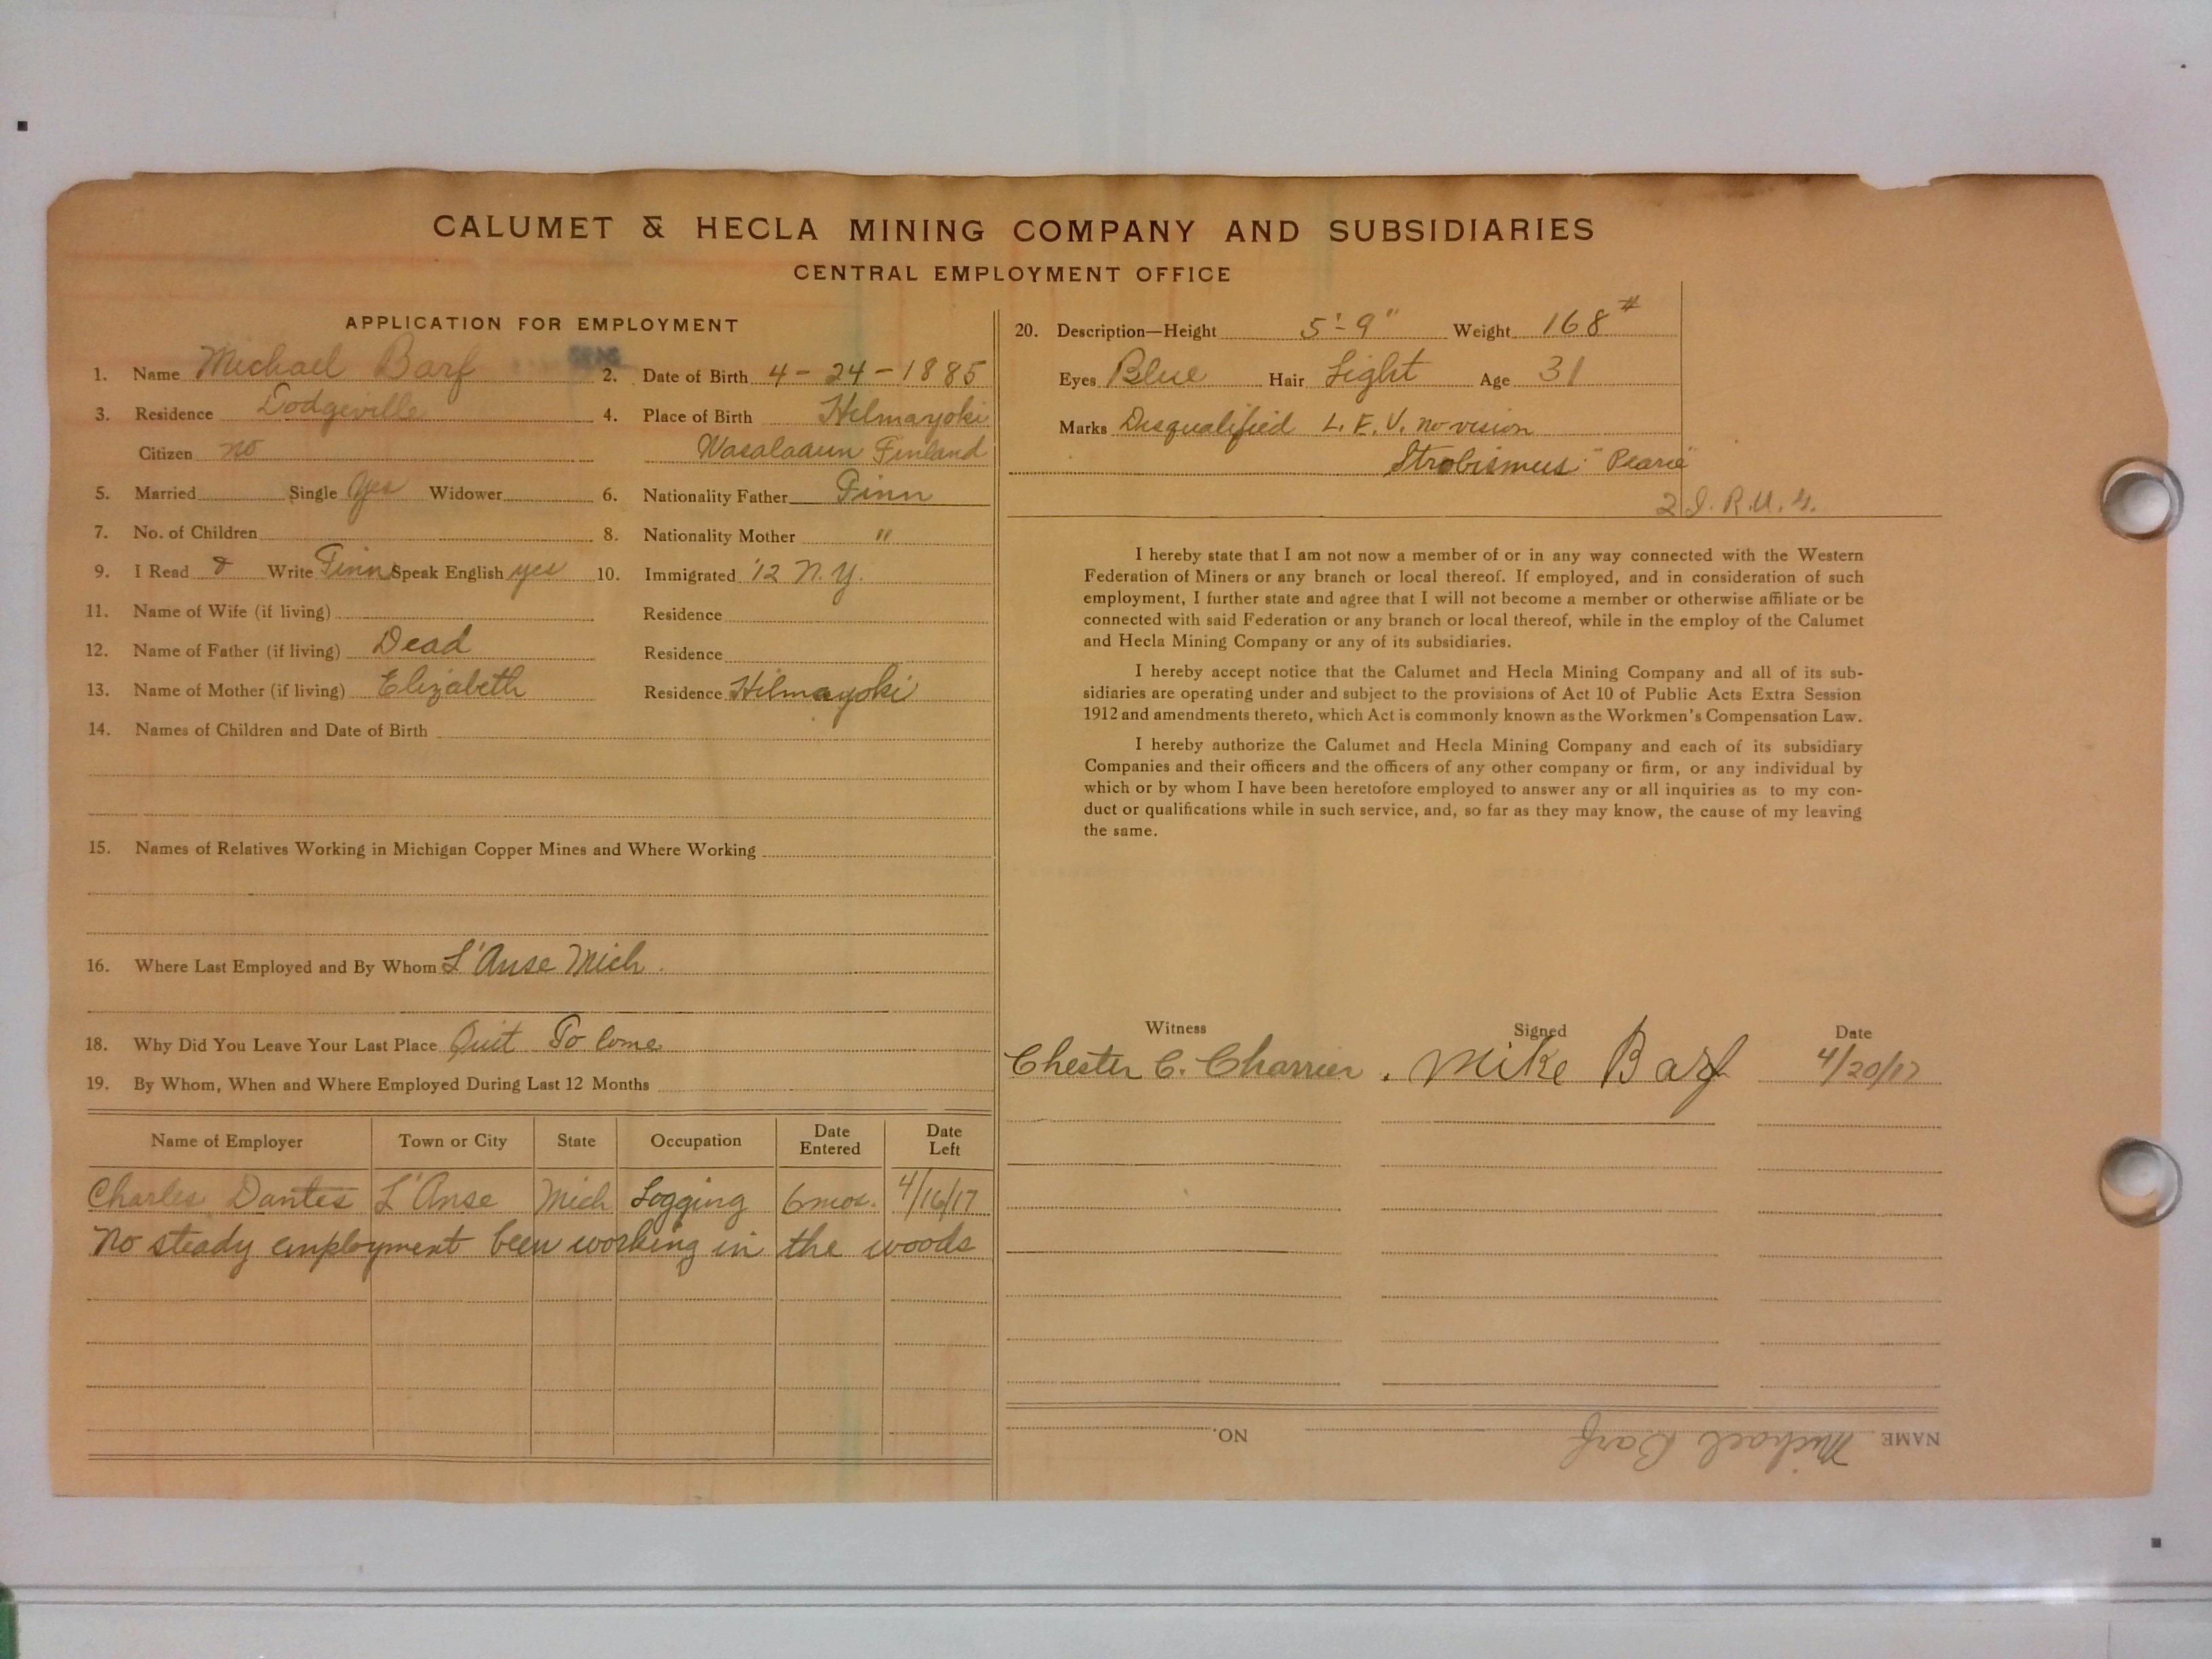 CALUMET & HECLA MINING COMPANY AND SUBSIDIARIES
CENTRAL EMPLOYMENT OFFICE
APPLICATION FOR EMPLOYMENT
1. Name Michael Barf 2. Date of Birth 4-24-1885
3. Residence Dodgeville 4. Place of Birth Hilmayoki
Citizen no Wasalaaun Finland
5. Married Single Yes Widower 6. Nationality Father Finn
7. No. of Children 8. Nationality Mother "
9. I Read & Write Finn Speak English yes 10. Immigrated '12 N.Y.
11. Name of Wife (if living) Residence
12. Name of Father (if living) Dead Residence
13. Name of Mother (if living) Elizabeth Residence Hilmayoki
14. Names of Children and Date of Birth
15. Names of Relatives Working in Michigan Copper Mines and Where Working
16. Where Last Employed and By Whom L'Anse Mich.
18. Why Did You Leave Your Last Place Quit To Come
19. By Whom, When and Where Employed During Last 12 Months
Name of Employer Town or City State Occupation Date Entered Date Left
Charles Dantes L'Anse Mich Logging 6 mos. 4/16/17
No steady employment been working in the woods
20. Description—Height 5'-9" Weight 168#
Eyes Blue Hair Light Age 31
Marks Disqualified L.E.V. no vision
Strobismus
I hereby state that I am not now a member of or in any way connected with the Western
Federation of Miners or any branch or local thereof. If employed, and in consideration of such
employment, I further state and agree that I will not become a member or otherwise affiliate or be
connected with said Federation or any branch or local thereof, while in the employ of the Calumet
and Hecla Mining Company or any of its subsidiaries.
I hereby accept notice that the Calumet and Hecla Mining Company and all of its sub-
sidiaries are operating under and subject to the provisions of Act 10 of Public Acts Extra Session
1912 and amendments thereto, which Act is commonly known as the Workmen's Compensation Law.
I hereby authorize the Calumet and Hecla Mining Company and each of its subsidiary
Companies and their officers and the officers of any other company or firm, or any individual by
which or by whom I have been heretofore employed to answer any or all inquiries as to my con-
duct or qualifications while in such service, and, so far as they may know, the cause of my leaving
the same.
Witness Signed Date
Chester C. Charrier. Mike Barf 4/20/17
NAME Michael Barf NO.